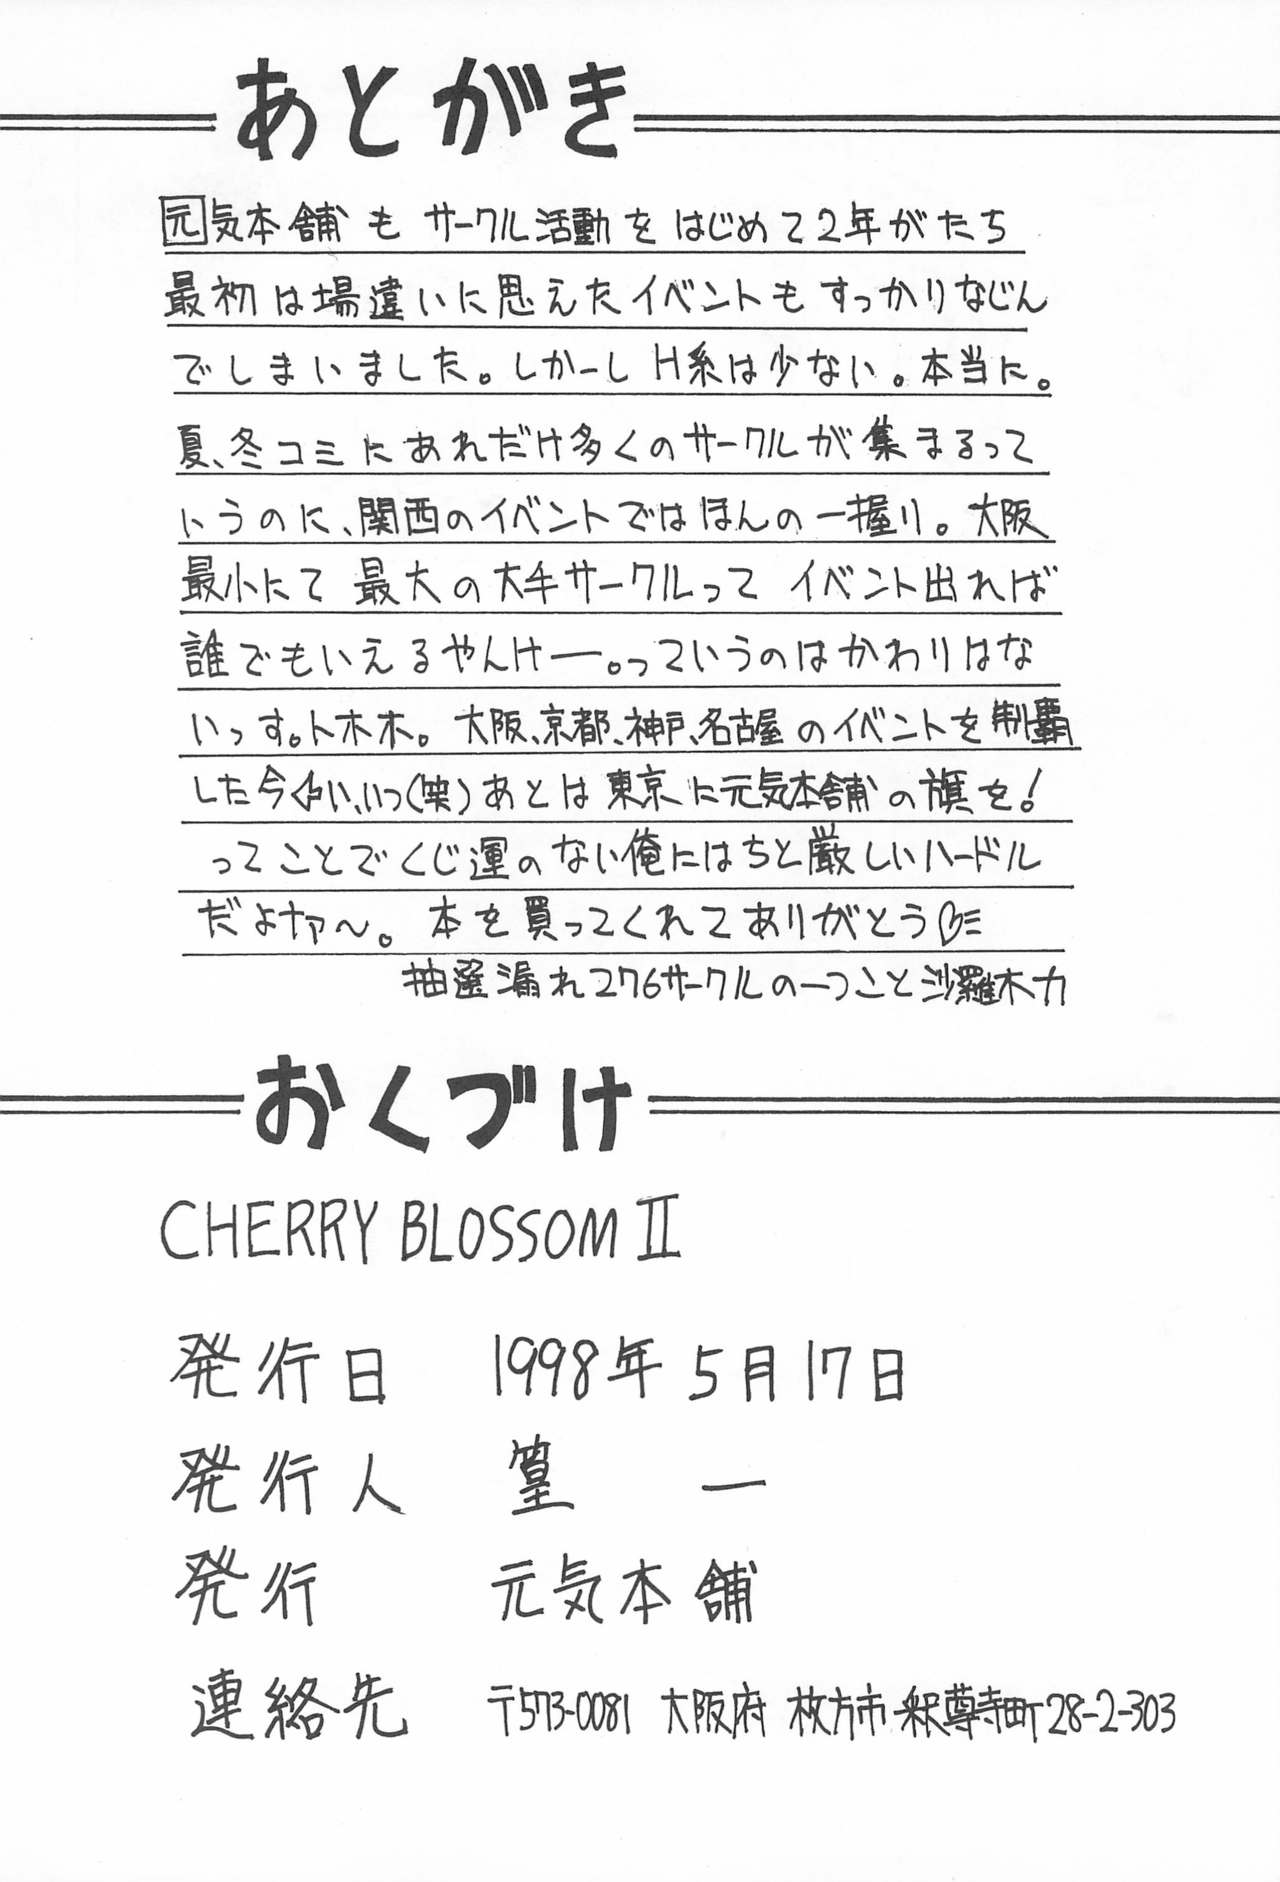 あとがき
元気本舗も サークル活動をはじめて2年がたち
最初は場違いに思えたイベントもすっかりなじん
でしまいました。しかーしH系は少ない。本当に。
夏、冬コミにあれだけ多くのサークルが集まるって
いうのに、関西のイベントではほんの一握り。大阪
最小にて 最大の大手サークルって イベント出れば
誰でもいえるやんけー。っていうのはかわりはな
いっす。トホホ。大阪、京都、神戸、名古屋のイベントを制覇
した今(笑)あとは東京に元気本舗の旗を!
ってことでくじ運のない俺にはちと厳しいハードル
だよナァ〜。本を買ってくれてありがとう♡
抽選漏れ276サークルの一つこと沙羅木力
おくづけ
CHERRY BLOSSOM II
発行日 1998年5月17日
発行人 篁 一
発行 元気本舗
連絡先 〒573-0081 大阪府 枚方市釈尊寺町28-2-303